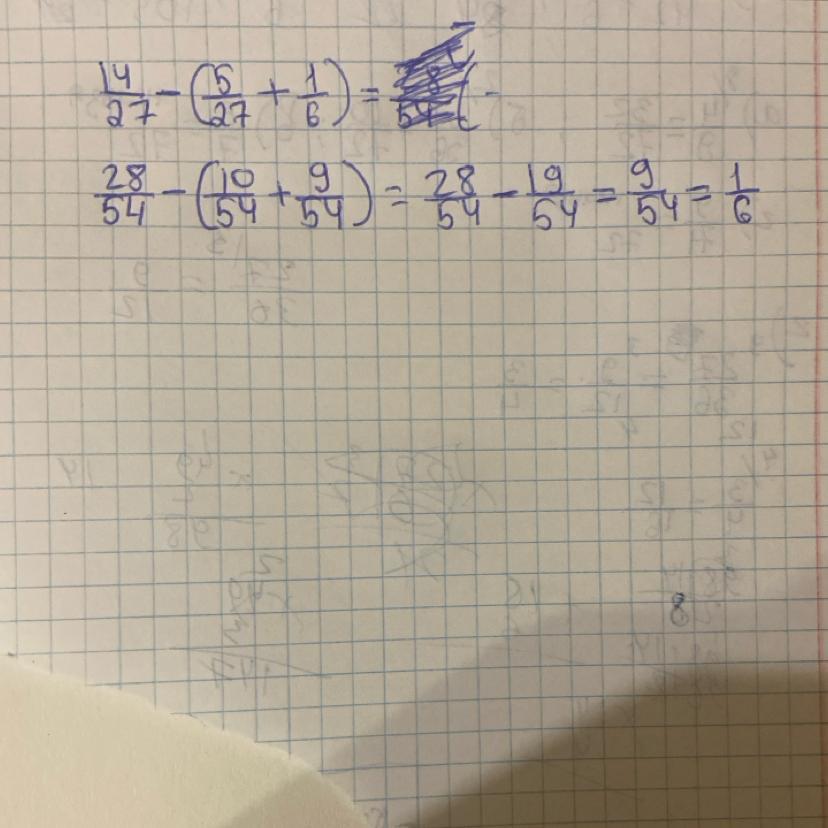 14/27 - (5/27 + 1/6) =
28/54 - (10/54 + 9/54) = 28/54 - 19/54 = 9/54 = 1/6
8